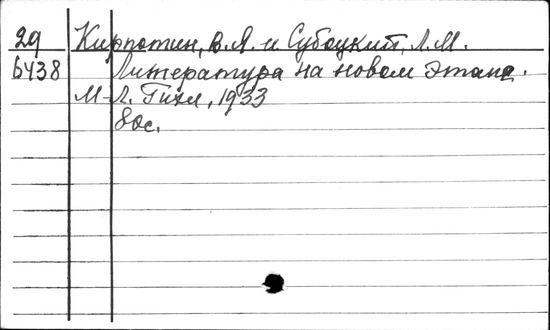 29 Кирпотин, В.Я. и Субоцкий, Л.М.
6438 Литература на новом этапе.
М-Л. Гихл, 1933
80с.